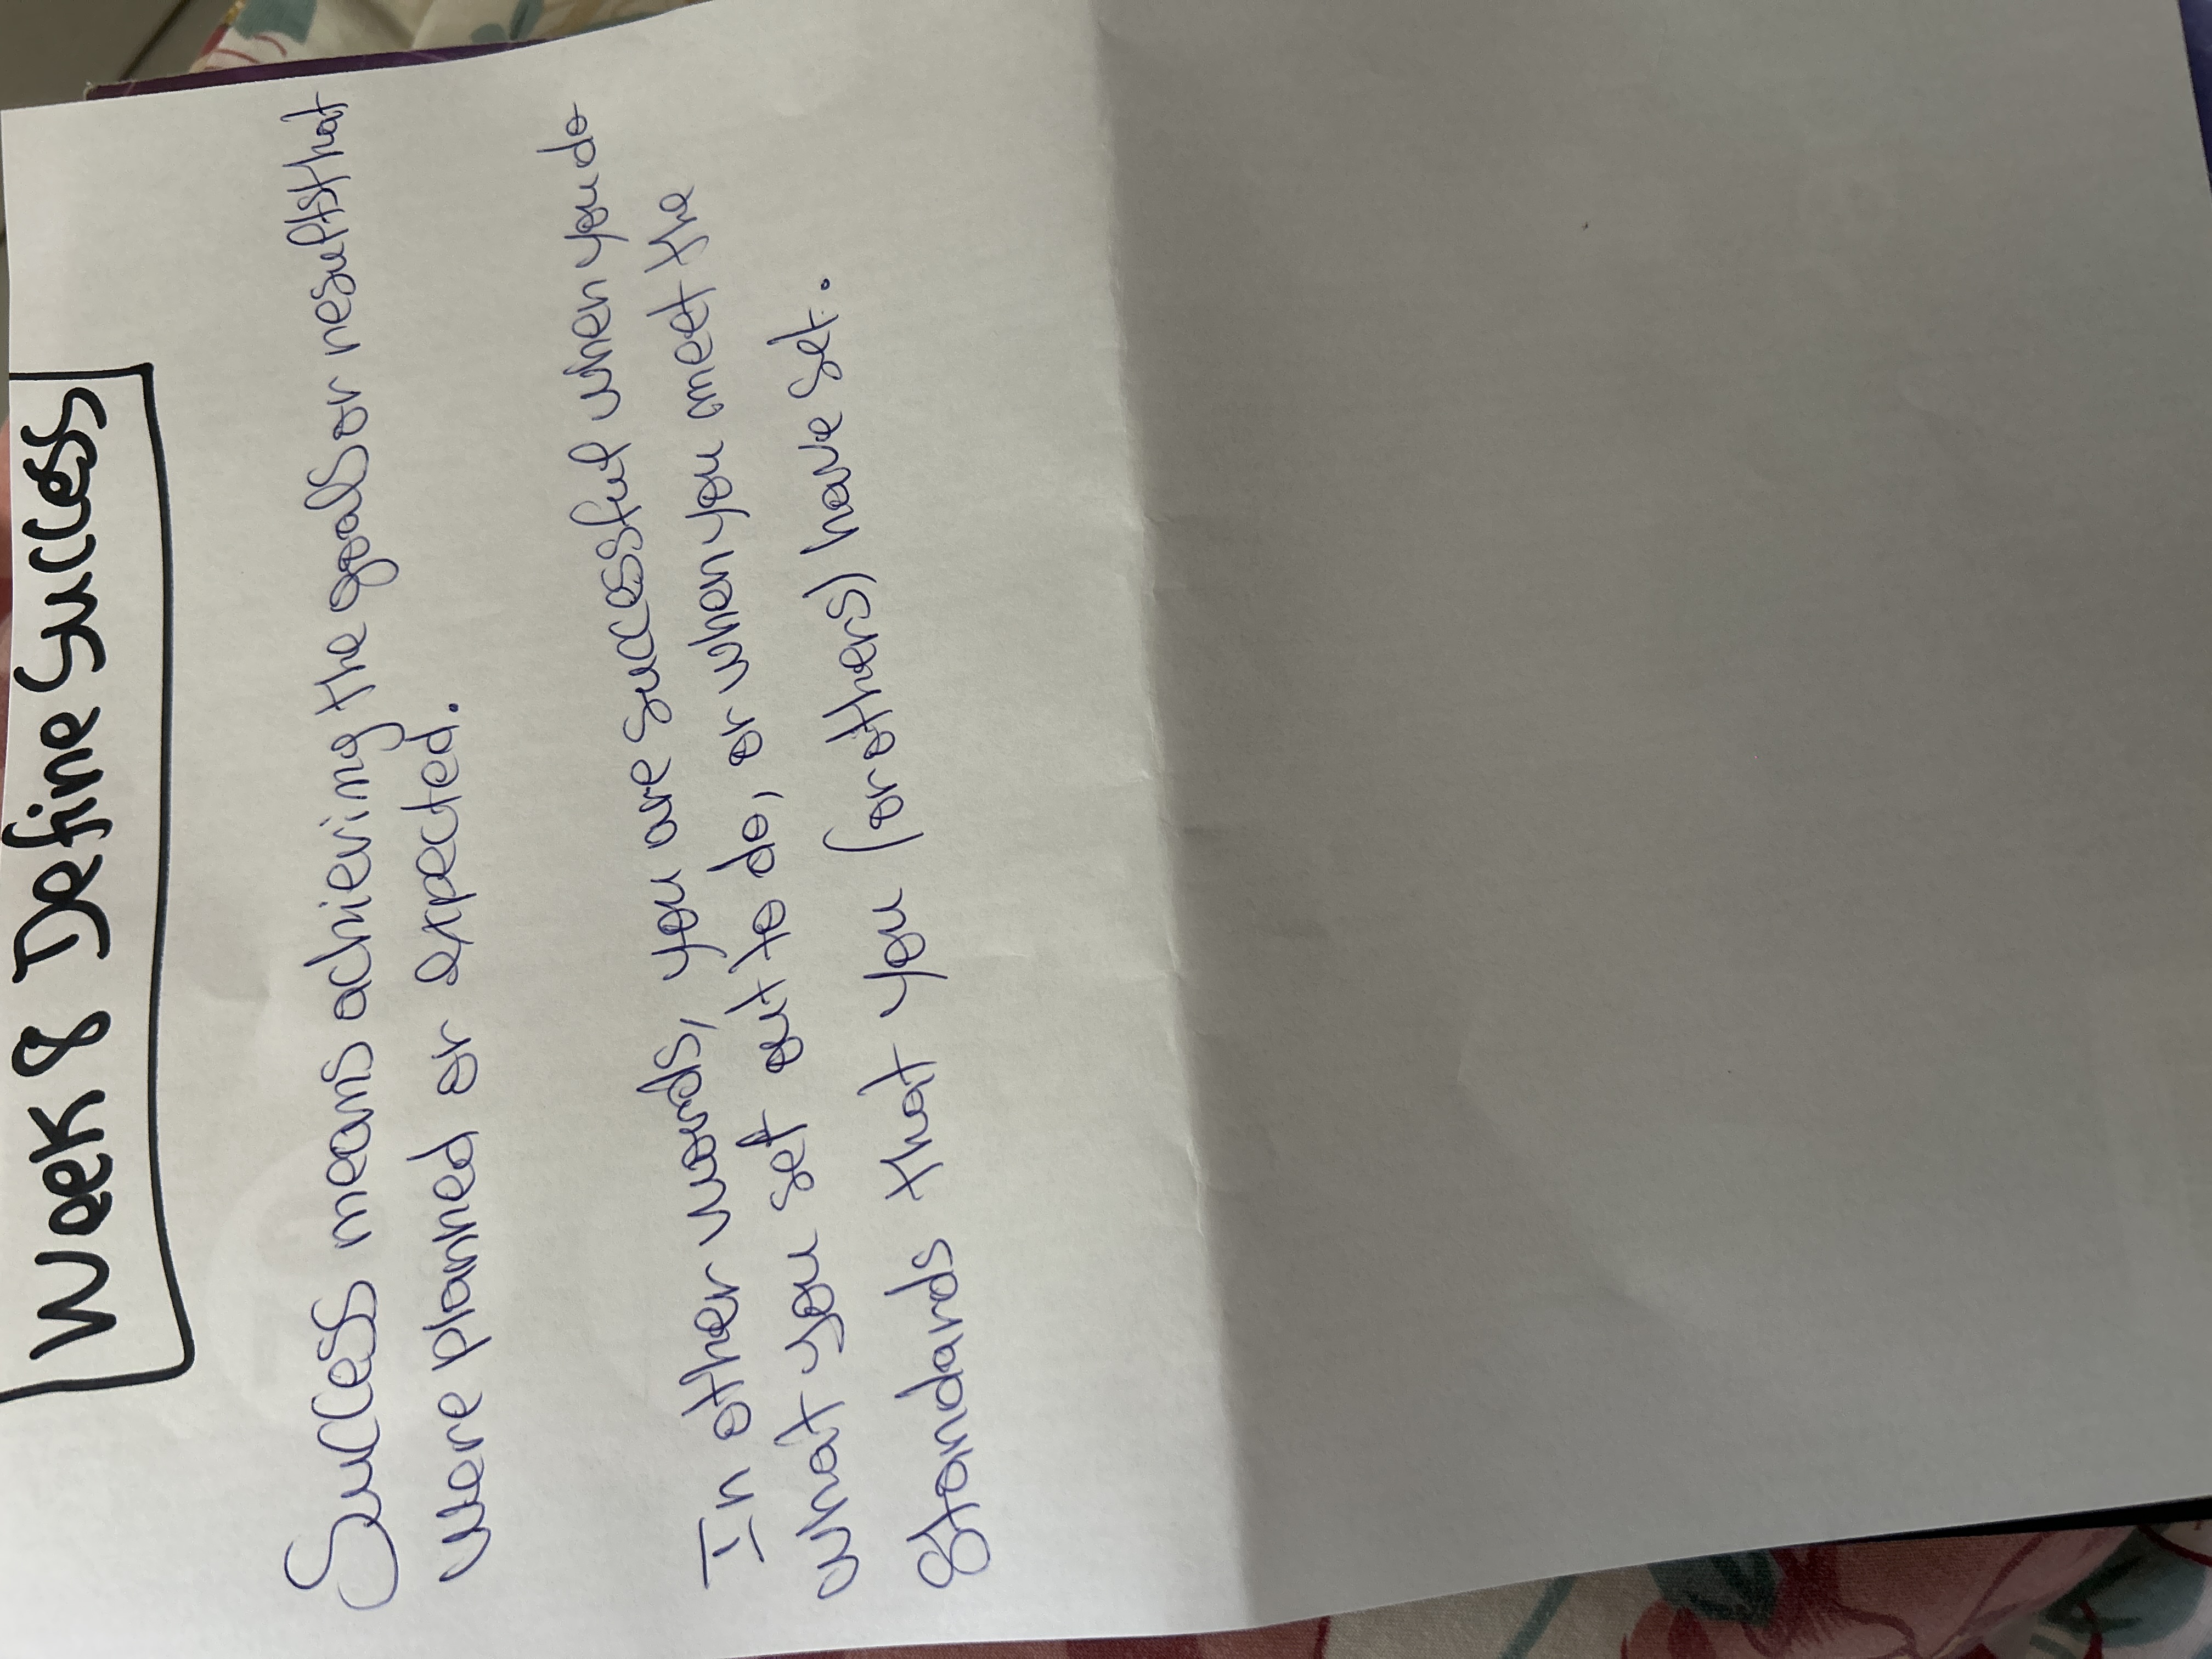 Week 8 Define Success
Success means achieving the goals or results that
were planned or expected.
In other words, you are successful when you do
what you set out to do, or when you meet the
standards that you (or others) have set.